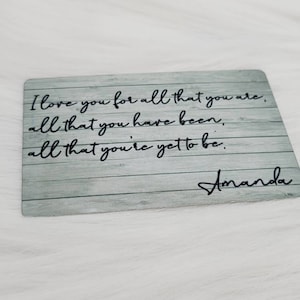 I love you for all that you are,
all that you have been,
all that you're yet to be.
Amanda